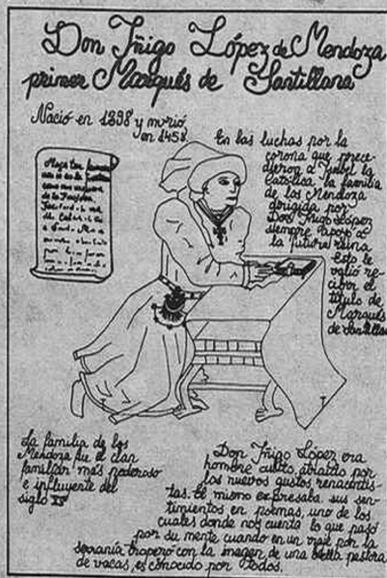 Don Iñigo López de Mendoza
primer Marqués de Santillana
Nació en 1398 y murió
en 1458
Moça tan fermosa
non vi en la frontera
como una vaquera
de la Finojosa.
En las luchas por la
corona que prece-
dieron a Isabel la
Católica la familia
de los Mendoza
dirigida por
Don Iñigo López
siempre apoyó a
la futura reina
Esto le
valió re-
cibir el
título de
Marqués
de Santillana
La familia de los
Mendoza fue el clan
familiar más poderoso
e influyente del
siglo XV
Don Iñigo López era
hombre culto, atraído por
los nuevos gustos renacentis-
tas. El mismo expresaba sus sen-
timientos en poemas, uno de los
cuales donde nos cuenta lo que pasó
por su mente cuando en un viaje por la
serranía tropezó con la imagen de una bella pastora
de vacas, es conocido por todos.